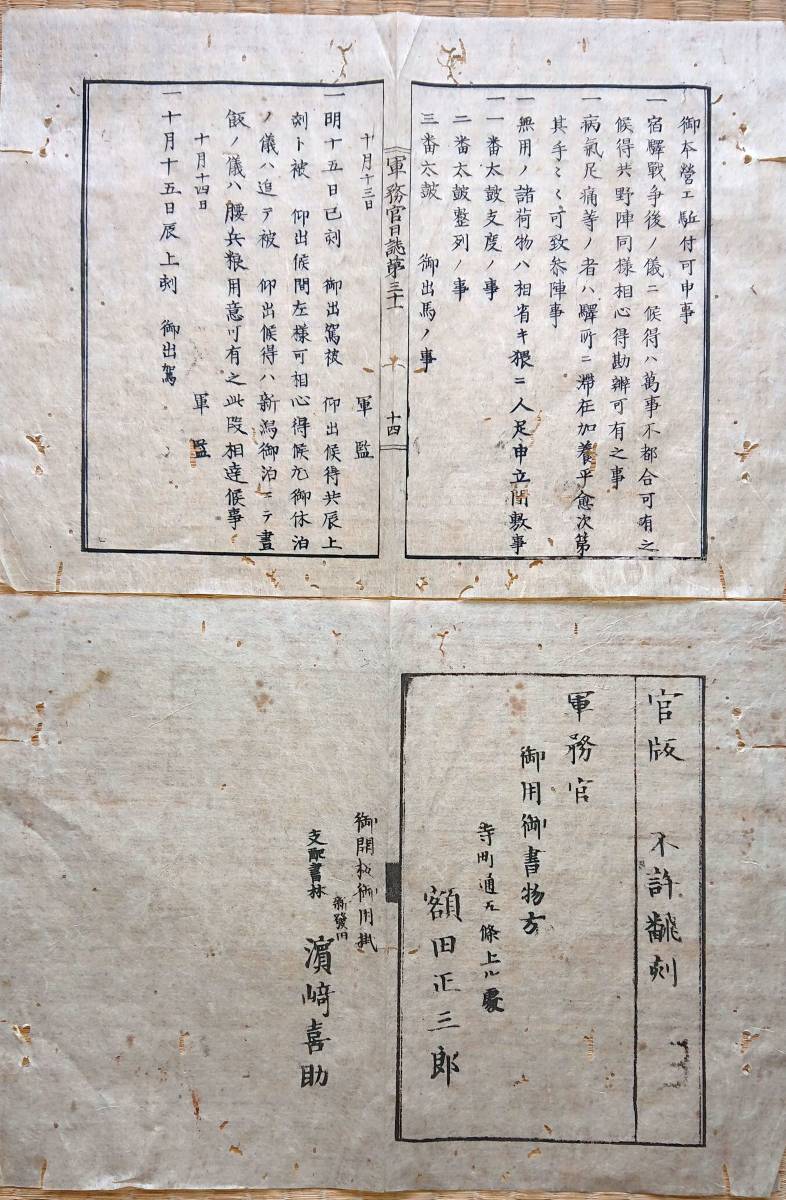 御本營エ駈付可申事
一宿驛戰爭後ノ儀ニ候得ハ萬事不都合可有之
候得共野陣同様相心得勘辨可有之事
一病氣足痛等ノ者ハ驛所ニ滯在加養平愈次第
其手〻〻可致参陣事
一無用ノ諸荷物ハ相省キ猥ニ人足申立間敷事
一一番太鼓支度ノ事
二番太鼓整列ノ事
三番太鼓 御出馬ノ事
軍務官日誌第三十一 十 十四
十月十三日 軍監
一明十五日巳刻 御出駕被 仰出候得共辰上
刻ト被 仰出候間左様可相心得候尤御休泊
ノ儀ハ追テ被 仰出候得ハ新潟御泊ニテ晝
飯ノ儀ハ腰兵粮用意可有之此段相達候事
十月十四日 軍監
一十月十五日辰上刻 御出駕
官版 不許飜刻
軍務官
御用御書物方
寺町通五條上ル處
額田正三郎
御開板御用掛
支配書林 新發田 濱﨑喜助